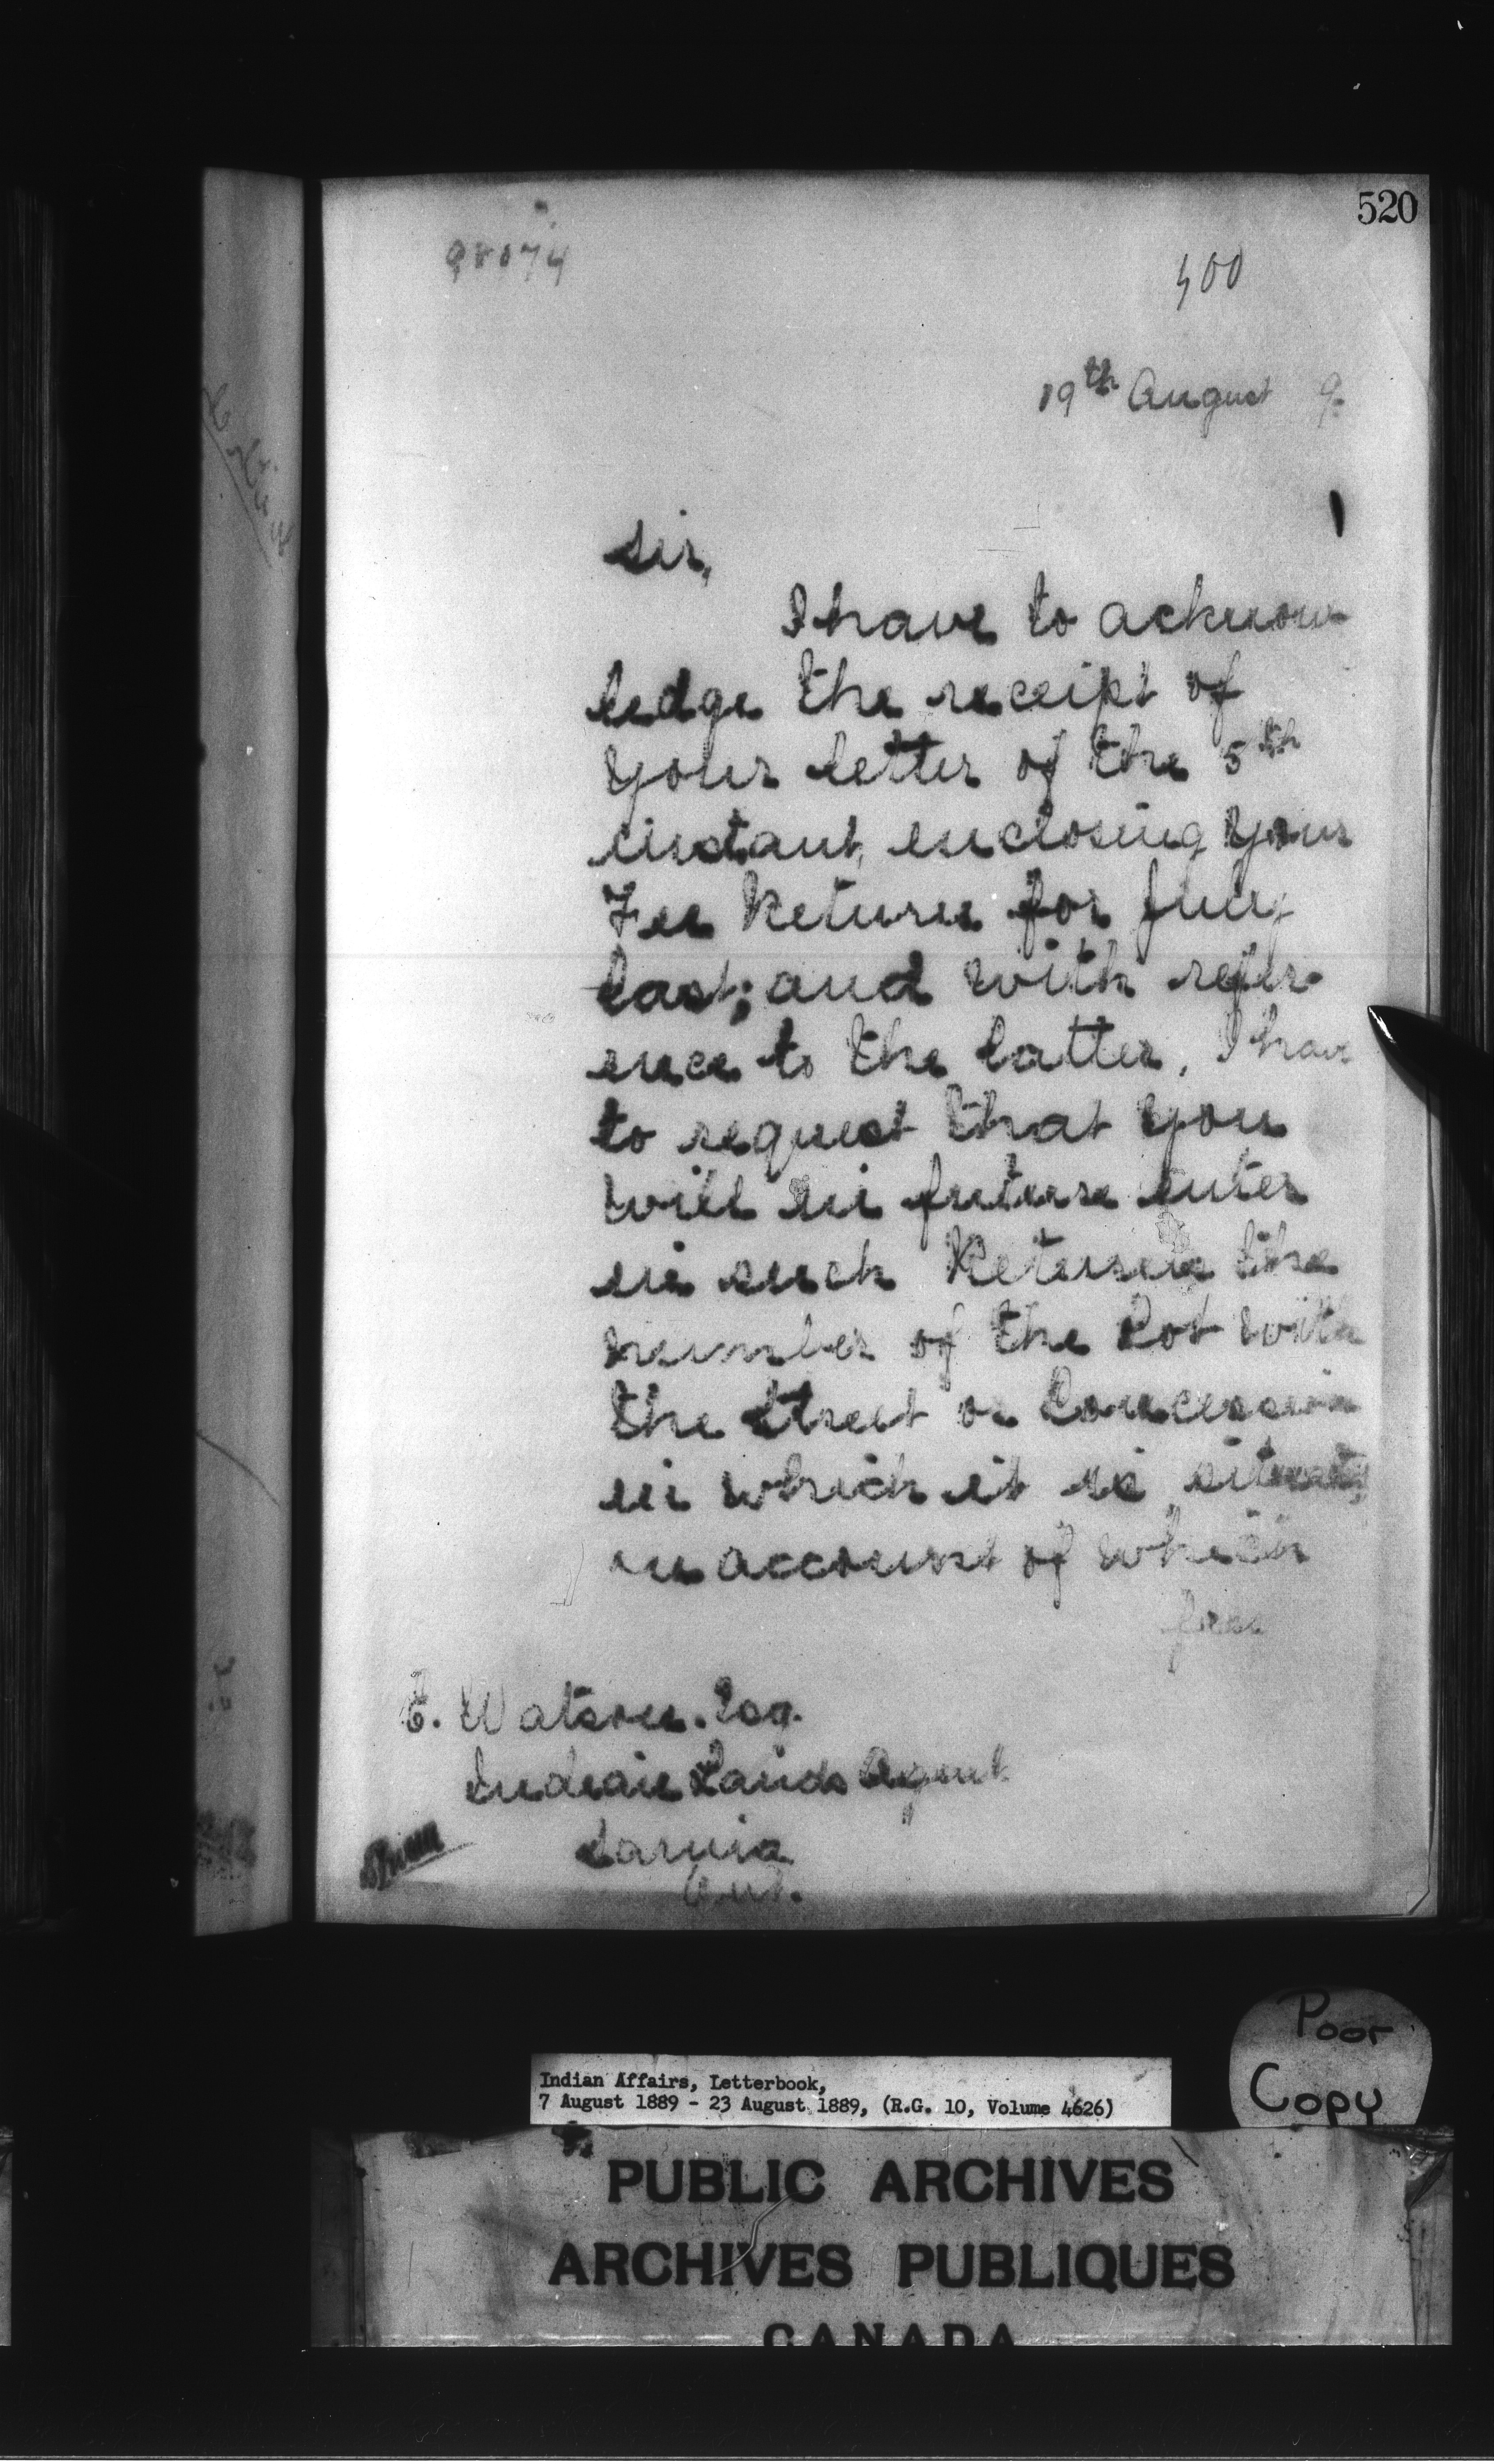 520
98074
400
19th August 9.
Sir,
I have to acknow
ledge the receipt of
your letter of the 5th
instant, enclosing your
Fee Return for July
last; and with refer-
ence to the latter, I have
to request that you
will in future enter
in such Returns the
number of the Lot with
the Street or Concession
in which it is situate,
on account of which
fees
E. Watson. Esq.
Indian Lands Agent
Sarnia
Ont.
Poor
Copy
Indian Affairs, Letterbook,
7 August 1889 - 23 August 1889, (R.G. 10, Volume 4626)
PUBLIC ARCHIVES
ARCHIVES PUBLIQUES
CANADA